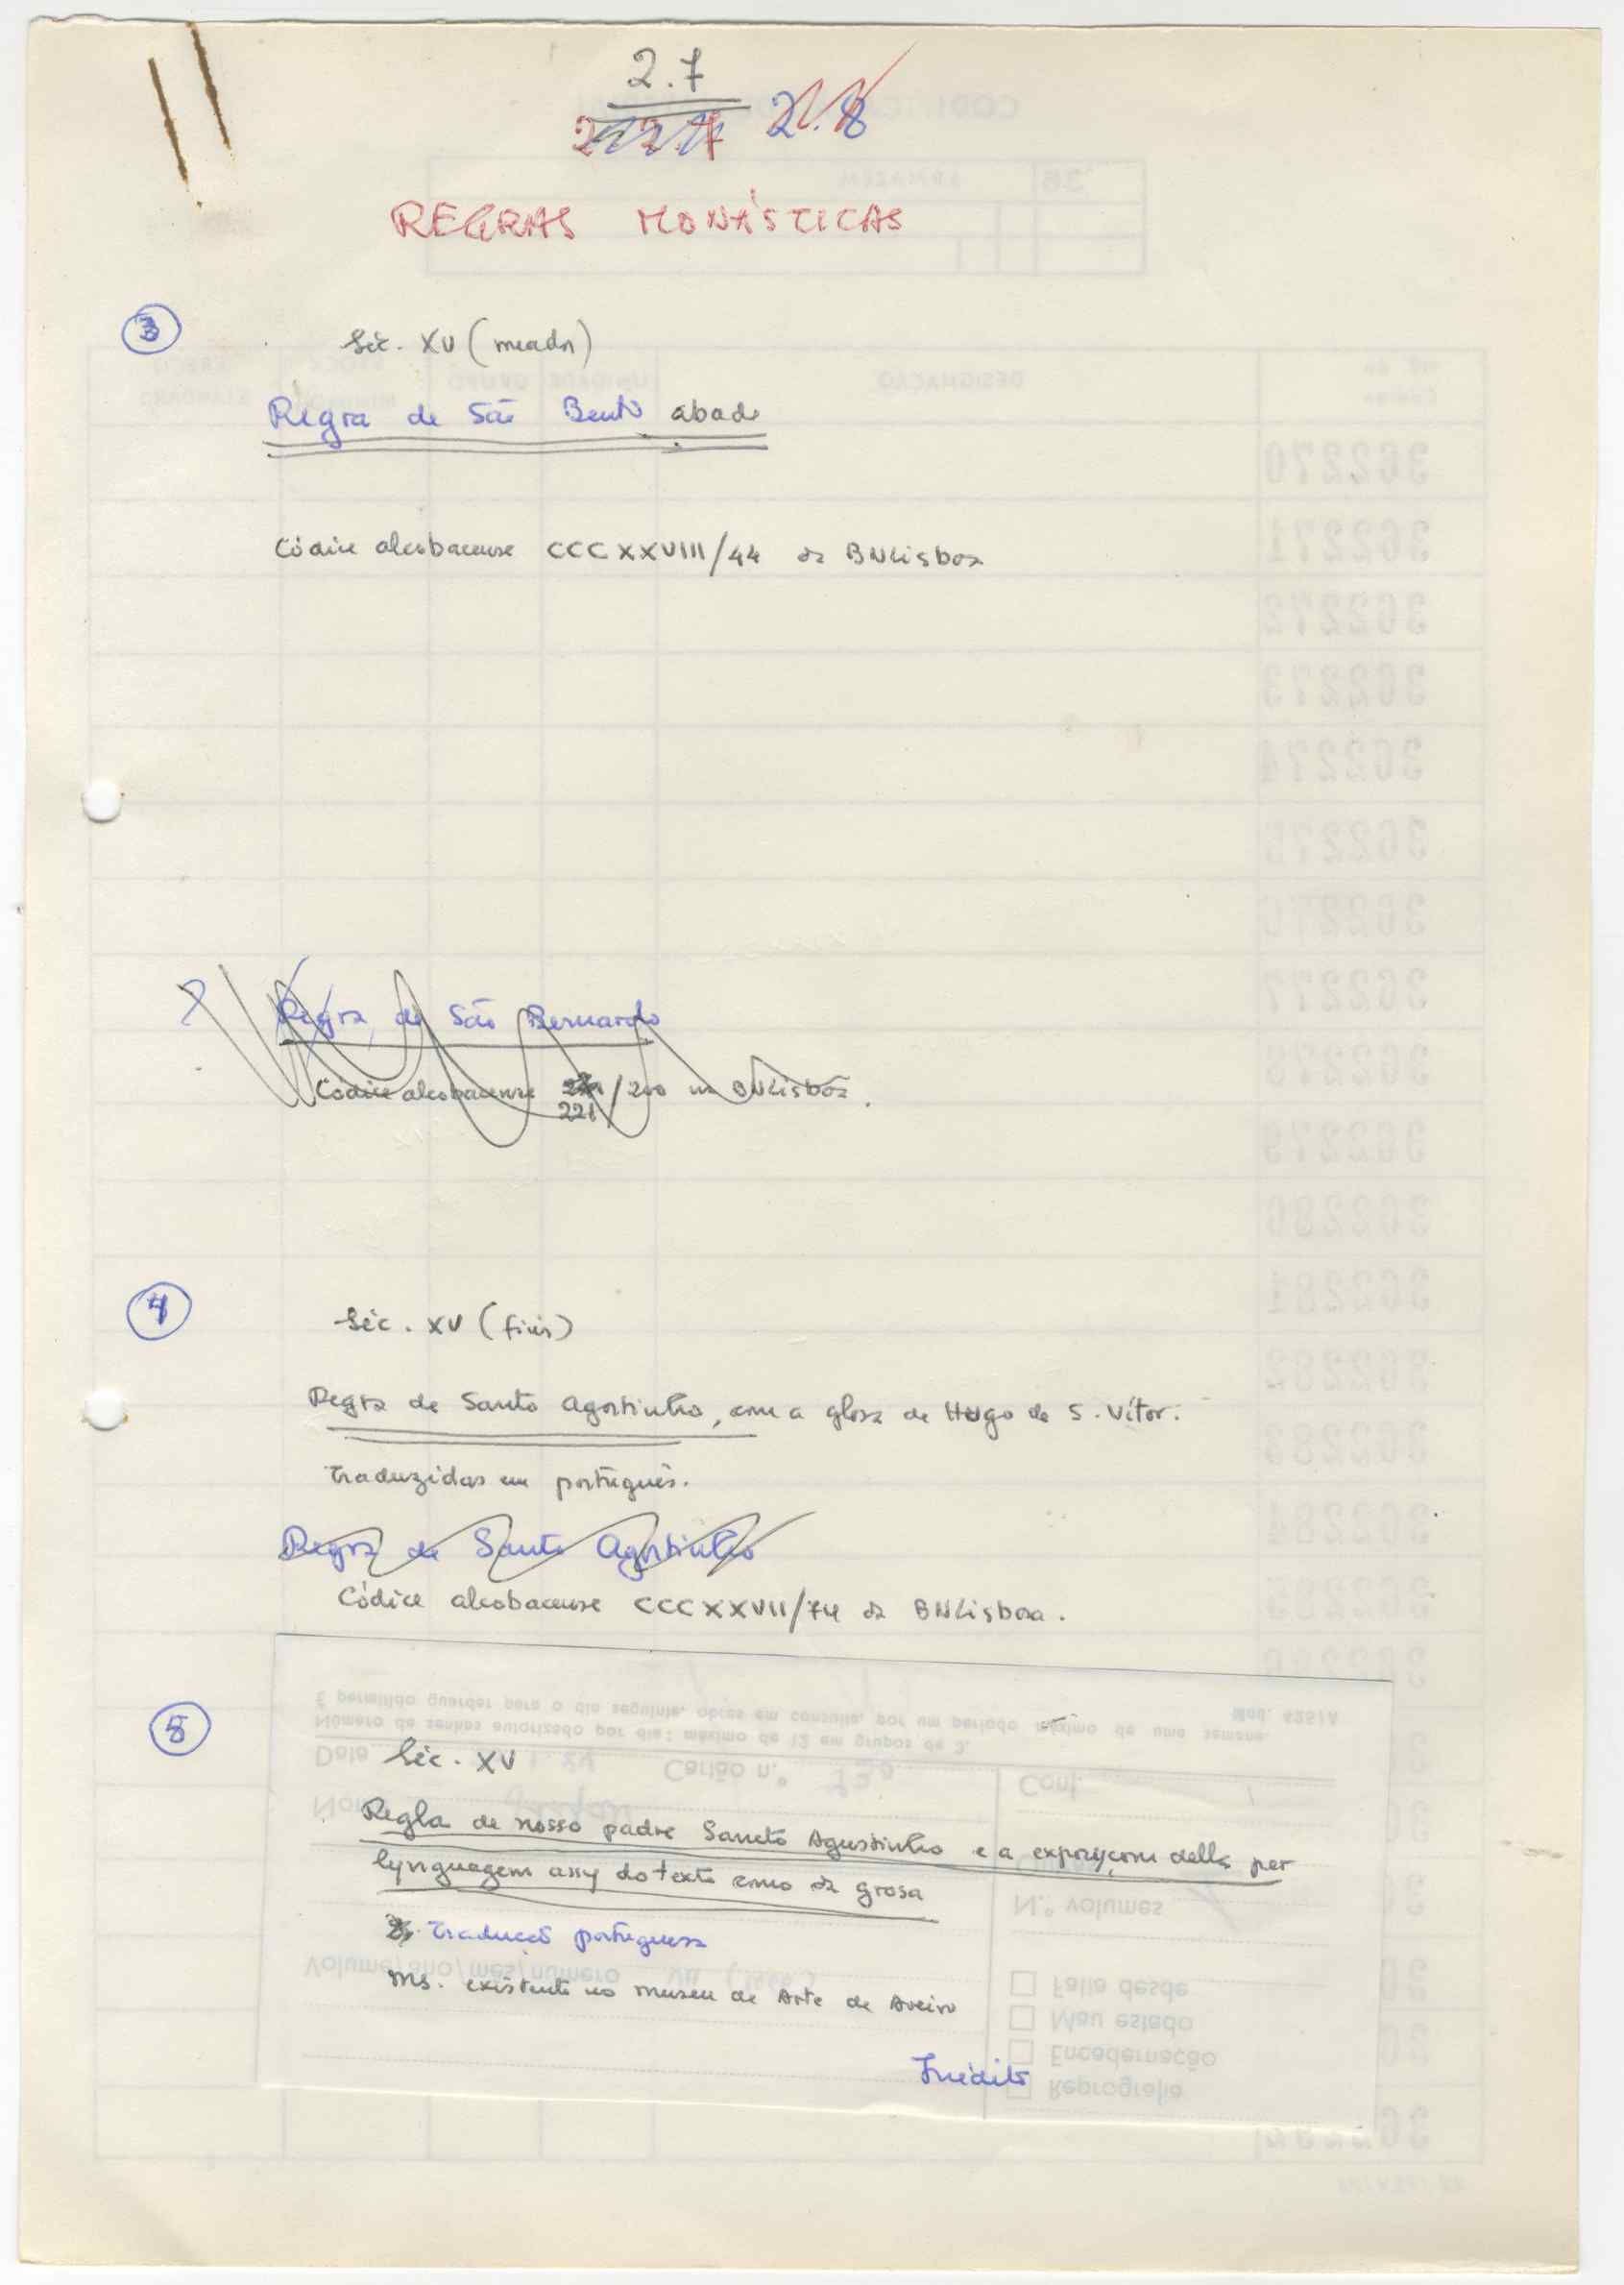 2.7
2.8
REGRAS MONÁSTICAS
3
Séc. XV (meados)
Regra de São Bento abade
Códice alcobacense CCCXXVIII/44 da BNLisboa
? Regra de São Bernardo
Códice alcobacense 221/200 na BNLisboa.
4
Séc. XV (fins)
Regra de Santo Agostinho, com a glosa de Hugo de S. Vítor.
Traduzidas em português.
Regra de Santo Agostinho
Códice alcobacense CCCXXVII/74 da BNLisboa.
5
Séc. XV
Regla de nosso padre Sancto Agustinho e a exposyçom della per
lynguagem assy do texto como da grosa
Tradução portuguesa
Ms. existente no Museu de Arte de Aveiro
Inédito